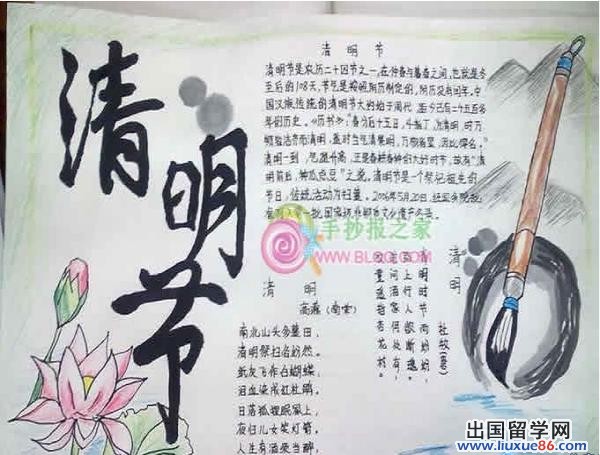 清明节
清明节
清明节是农历二十四节之一,在仲春与暮春之间,也就是冬
至后的108天,节气是按照阳历制定的,阴历没有闰年。中
国汉族传统的清明节大约始于周代,距今已有二千五百多
年的历史。《历书》:“春分后十五日,斗指丁,为清明,时万
物皆洁齐而清明,盖时当气清景明,万物皆显,因此得名。”
清明一到,气温升高,正是春耕春种的大好时节,故有“清
明前后,种瓜点豆”之说,清明节是一个祭祀祖先的
节日,传统活动为扫墓。2006年5月20日,经国务院批
准列入第一批国家级非物质文化遗产名录。
手抄报之家
清明
高翥(南宋)
南北山头多墓田,
清明祭扫各纷然。
纸灰飞作白蝴蝶,
泪血染成红杜鹃。
日落狐狸眠冢上,
夜归儿女笑灯前。
人生有酒须当醉,
清明
杜牧(唐)
清明时节雨纷纷,
路上行人欲断魂。
借问酒家何处有,
牧童遥指杏花村。
出国留学网
www.liuxue86.com